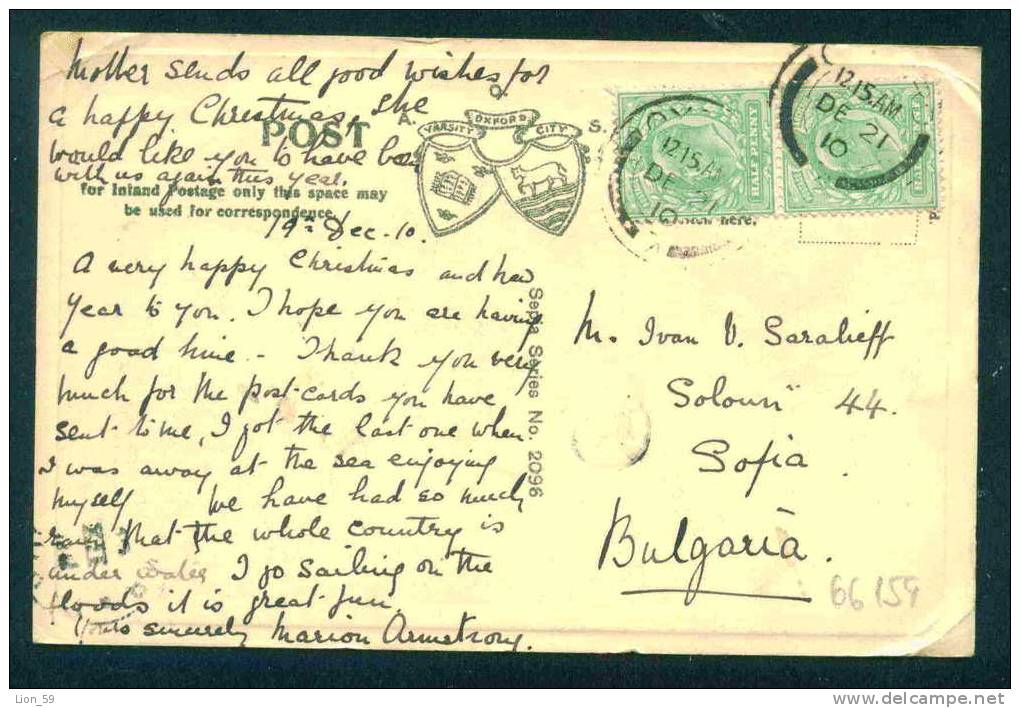 Mother sends all good wishes for
a happy Christmas, she
would like you to have been
with us again this year.
POST
A. O. S.
VARSITY OXFORD CITY
for Inland Postage only this space may
be used for correspondence.
19th Dec. 10.
A very happy Christmas and New
Year to you. I hope you are having
a good time - Thank you very
much for the post-cards you have
sent to me, I got the last one when
I was away at the sea enjoying
myself We have had so much
rain that the whole country is
under water I go sailing on the
floods it is great fun.
Yours sincerely Marion Armstrong.
Sepia Series No. 2096
12.15.AM
DE 21
10
12.15.AM
DE 21
10
HALF PENNY
HALF PENNY
here.
M. Ivan V. Saralieff
Solouni 44.
Sofia
Bulgaria.
66 159
Lion_59
www.delcampe.net